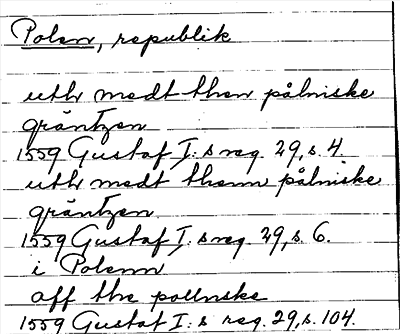 Polen, republik
uthi medt then pålniske
gräntzen
1559 Gustaf I:s reg. 29, s. 4.
uthi medt thenn pålniske
gräntzen
1559 Gustaf I:s reg. 29, s. 6.
i Polenn
aff the pollnske
1559 Gustaf I:s reg. 29, s. 104.